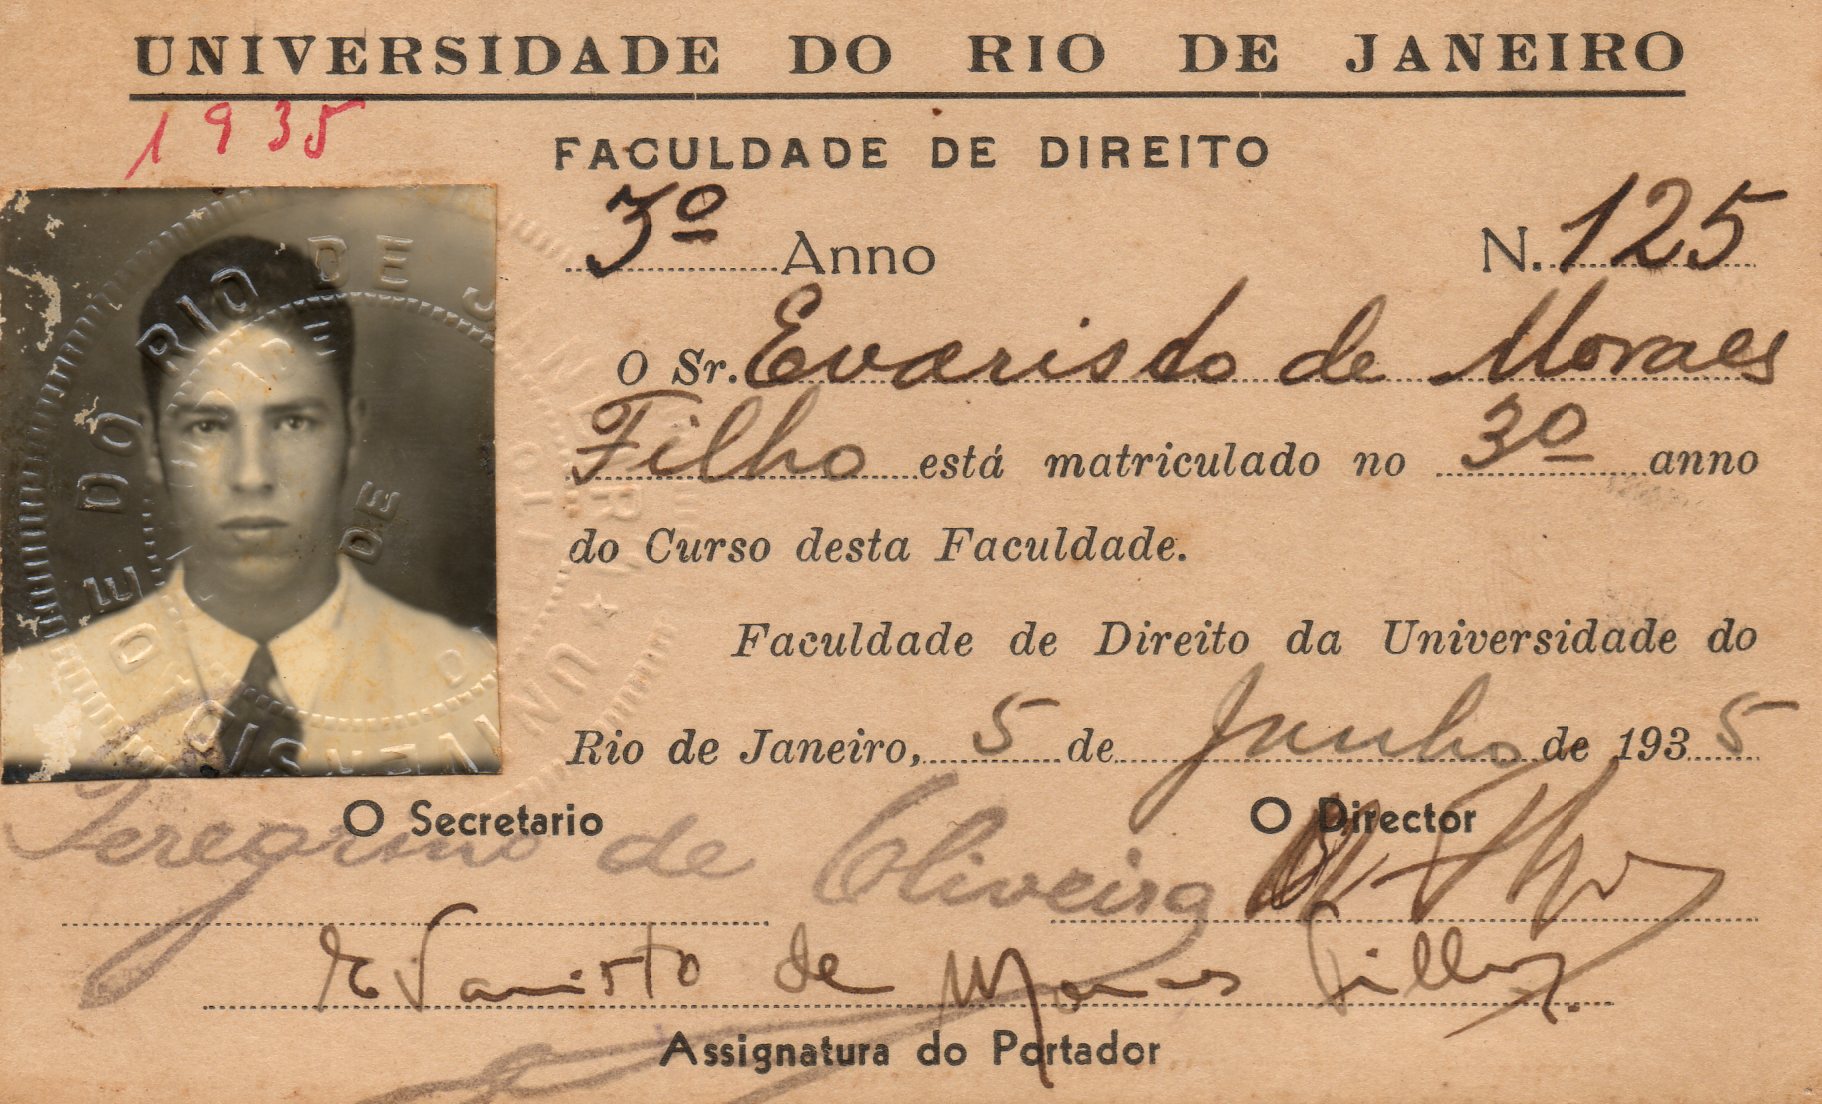 UNIVERSIDADE DO RIO DE JANEIRO
1935
FACULDADE DE DIREITO
3º Anno N. 125
O Sr. Evaristo de Moraes
Filho está matriculado no 3º anno
do Curso desta Faculdade.
Faculdade de Direito da Universidade do
Rio de Janeiro, 5 de Junho de 1935
O Secretario O Director
Peregrino de Oliveira
Evaristo de Moraes Filho.
Assignatura do Portador